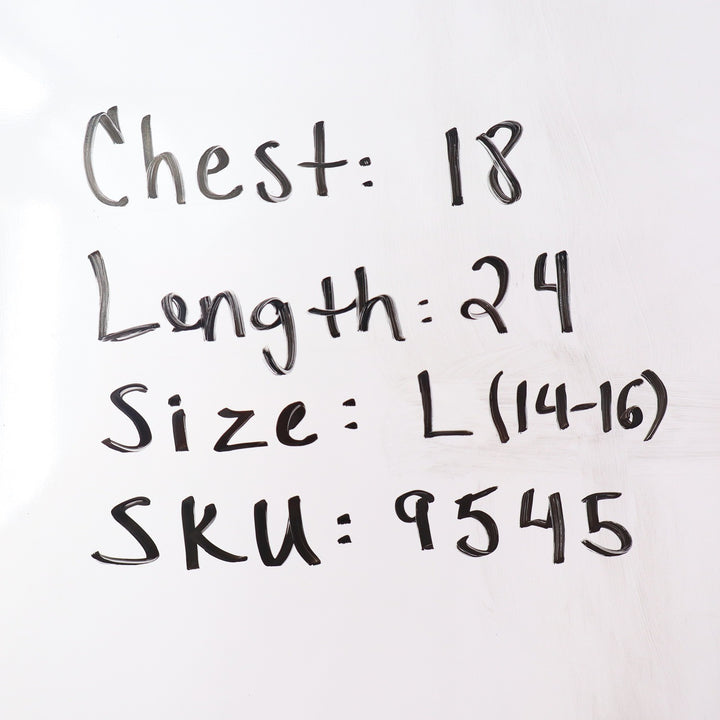 Chest: 18
Length: 24
Size: L (14-16)
SKU: 9545